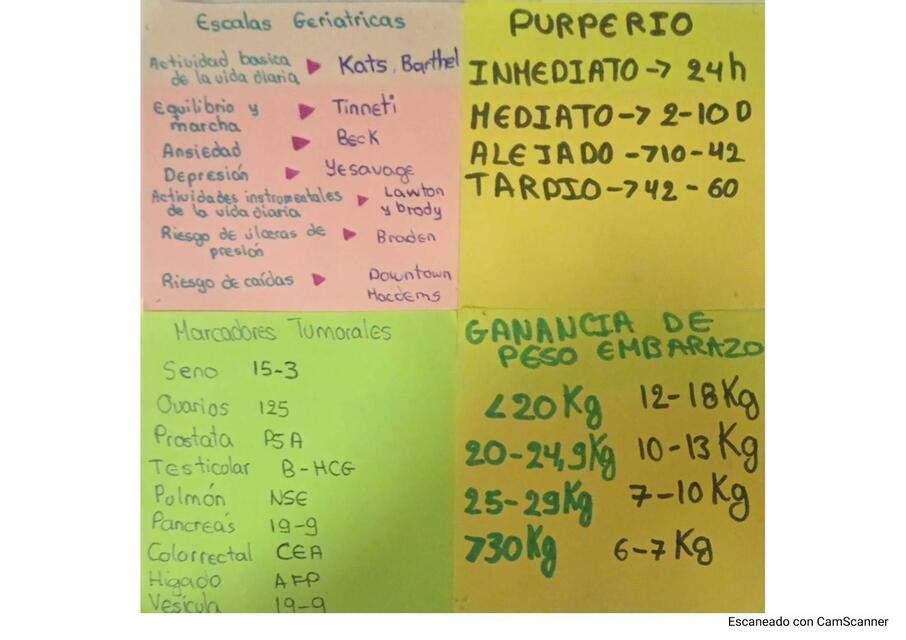 Escalas Geriatricas
Actividad basica
de la vida diaria ▶ Kats, Barthel
Equilibrio y
marcha ▶ Tinneti
Ansiedad ▶ Beck
Depresión ▶ Yesavage
Actividades instrumentales
de la vida diaria ▶ Lawton
y brody
Riesgo de úlceras de
presión ▶ Braden
Riesgo de caídas ▶ Downtown
Macdems
PURPERIO
INMEDIATO -> 24h
MEDIATO -> 2-10 D
ALEJADO ->10-42
TARDIO -> 42 - 60
Marcadores Tumorales
Seno 15-3
Ovarios 125
Prostata PSA
Testicolar B-HCG
Pulmón NSE
Pancreás 19-9
Colorrectal CEA
Higado AFP
Vesícula 19-9
GANANCIA DE
PESO EMBARAZO
<20Kg 12-18Kg
20-24,9Kg 10-13Kg
25-29Kg 7-10Kg
>30Kg 6-7Kg
Escaneado con CamScanner